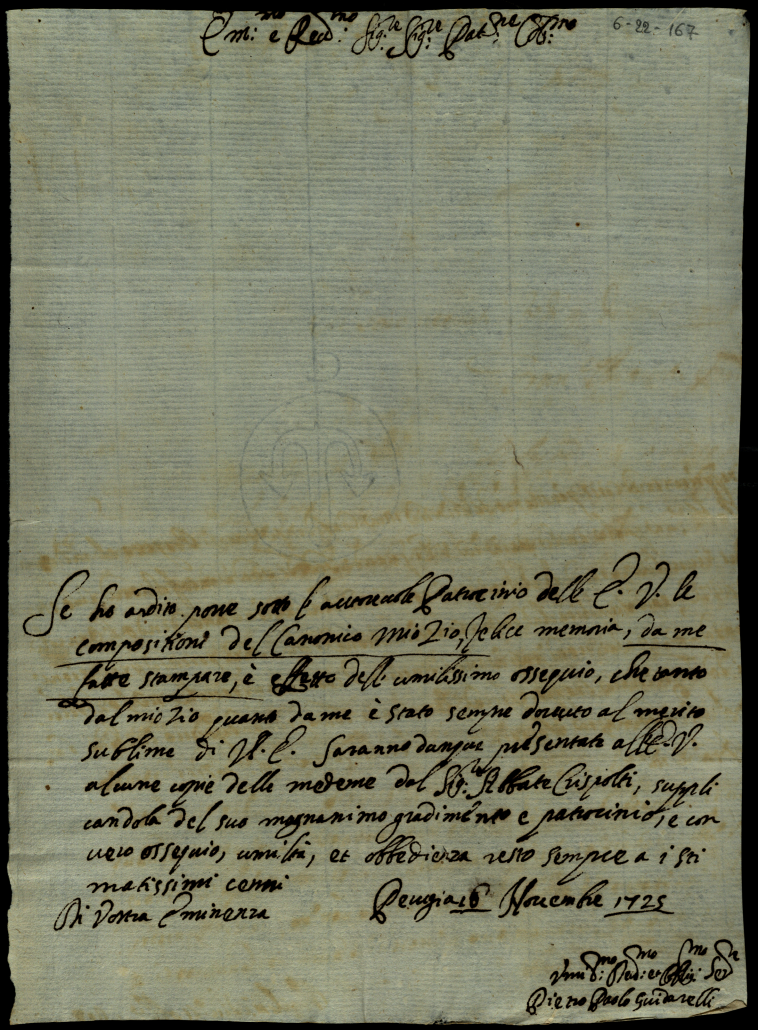 6-22-167
Em:mo e Reud:mo Sig:re Sig:re Pat:ne Col:mo
Se ho ardito porre sotto l'autoreuole Patrocinio dell' E. V. le
compositioni del Canonico mio Zio, felice memoria, da me
fatte stampare, è effetto dell' umilissimo ossequio, che tanto
dal mio Zio quanto da me è stato sempre douuto al merito
sublime di V. E. Saranno dunque presentate all' E. V.
alcune copie delle medeme dal Sig:re Abbate Crispolti, suppli
candola del suo magnanimo gradimento e patrocinio, e con
uero ossequio, umiltà, et obbedienza resto sempre a i sti
matissimi cenni
Di Vostra Eminenza
Perugia 16 Nouembre 1725
Vmi:mo Deu:mo et Obblig:mo Ser:re
Pietro Paolo Guidarelli